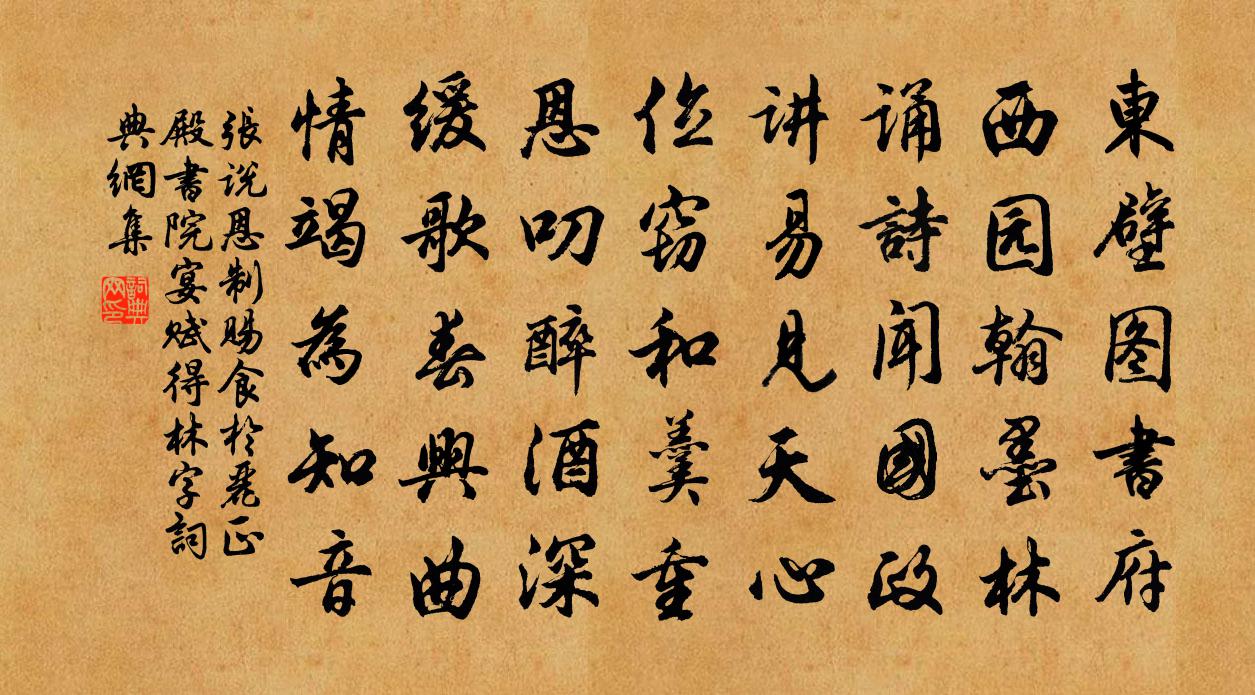 東壁图書府
西园翰墨林
诵詩聞國政
讲易見天心
位窃和羹重
恩叨醉酒深
缓歌春興曲
情竭為知音
張说恩制賜食於麗正
殿書院宴赋得林字詞
典網集
詞典网印